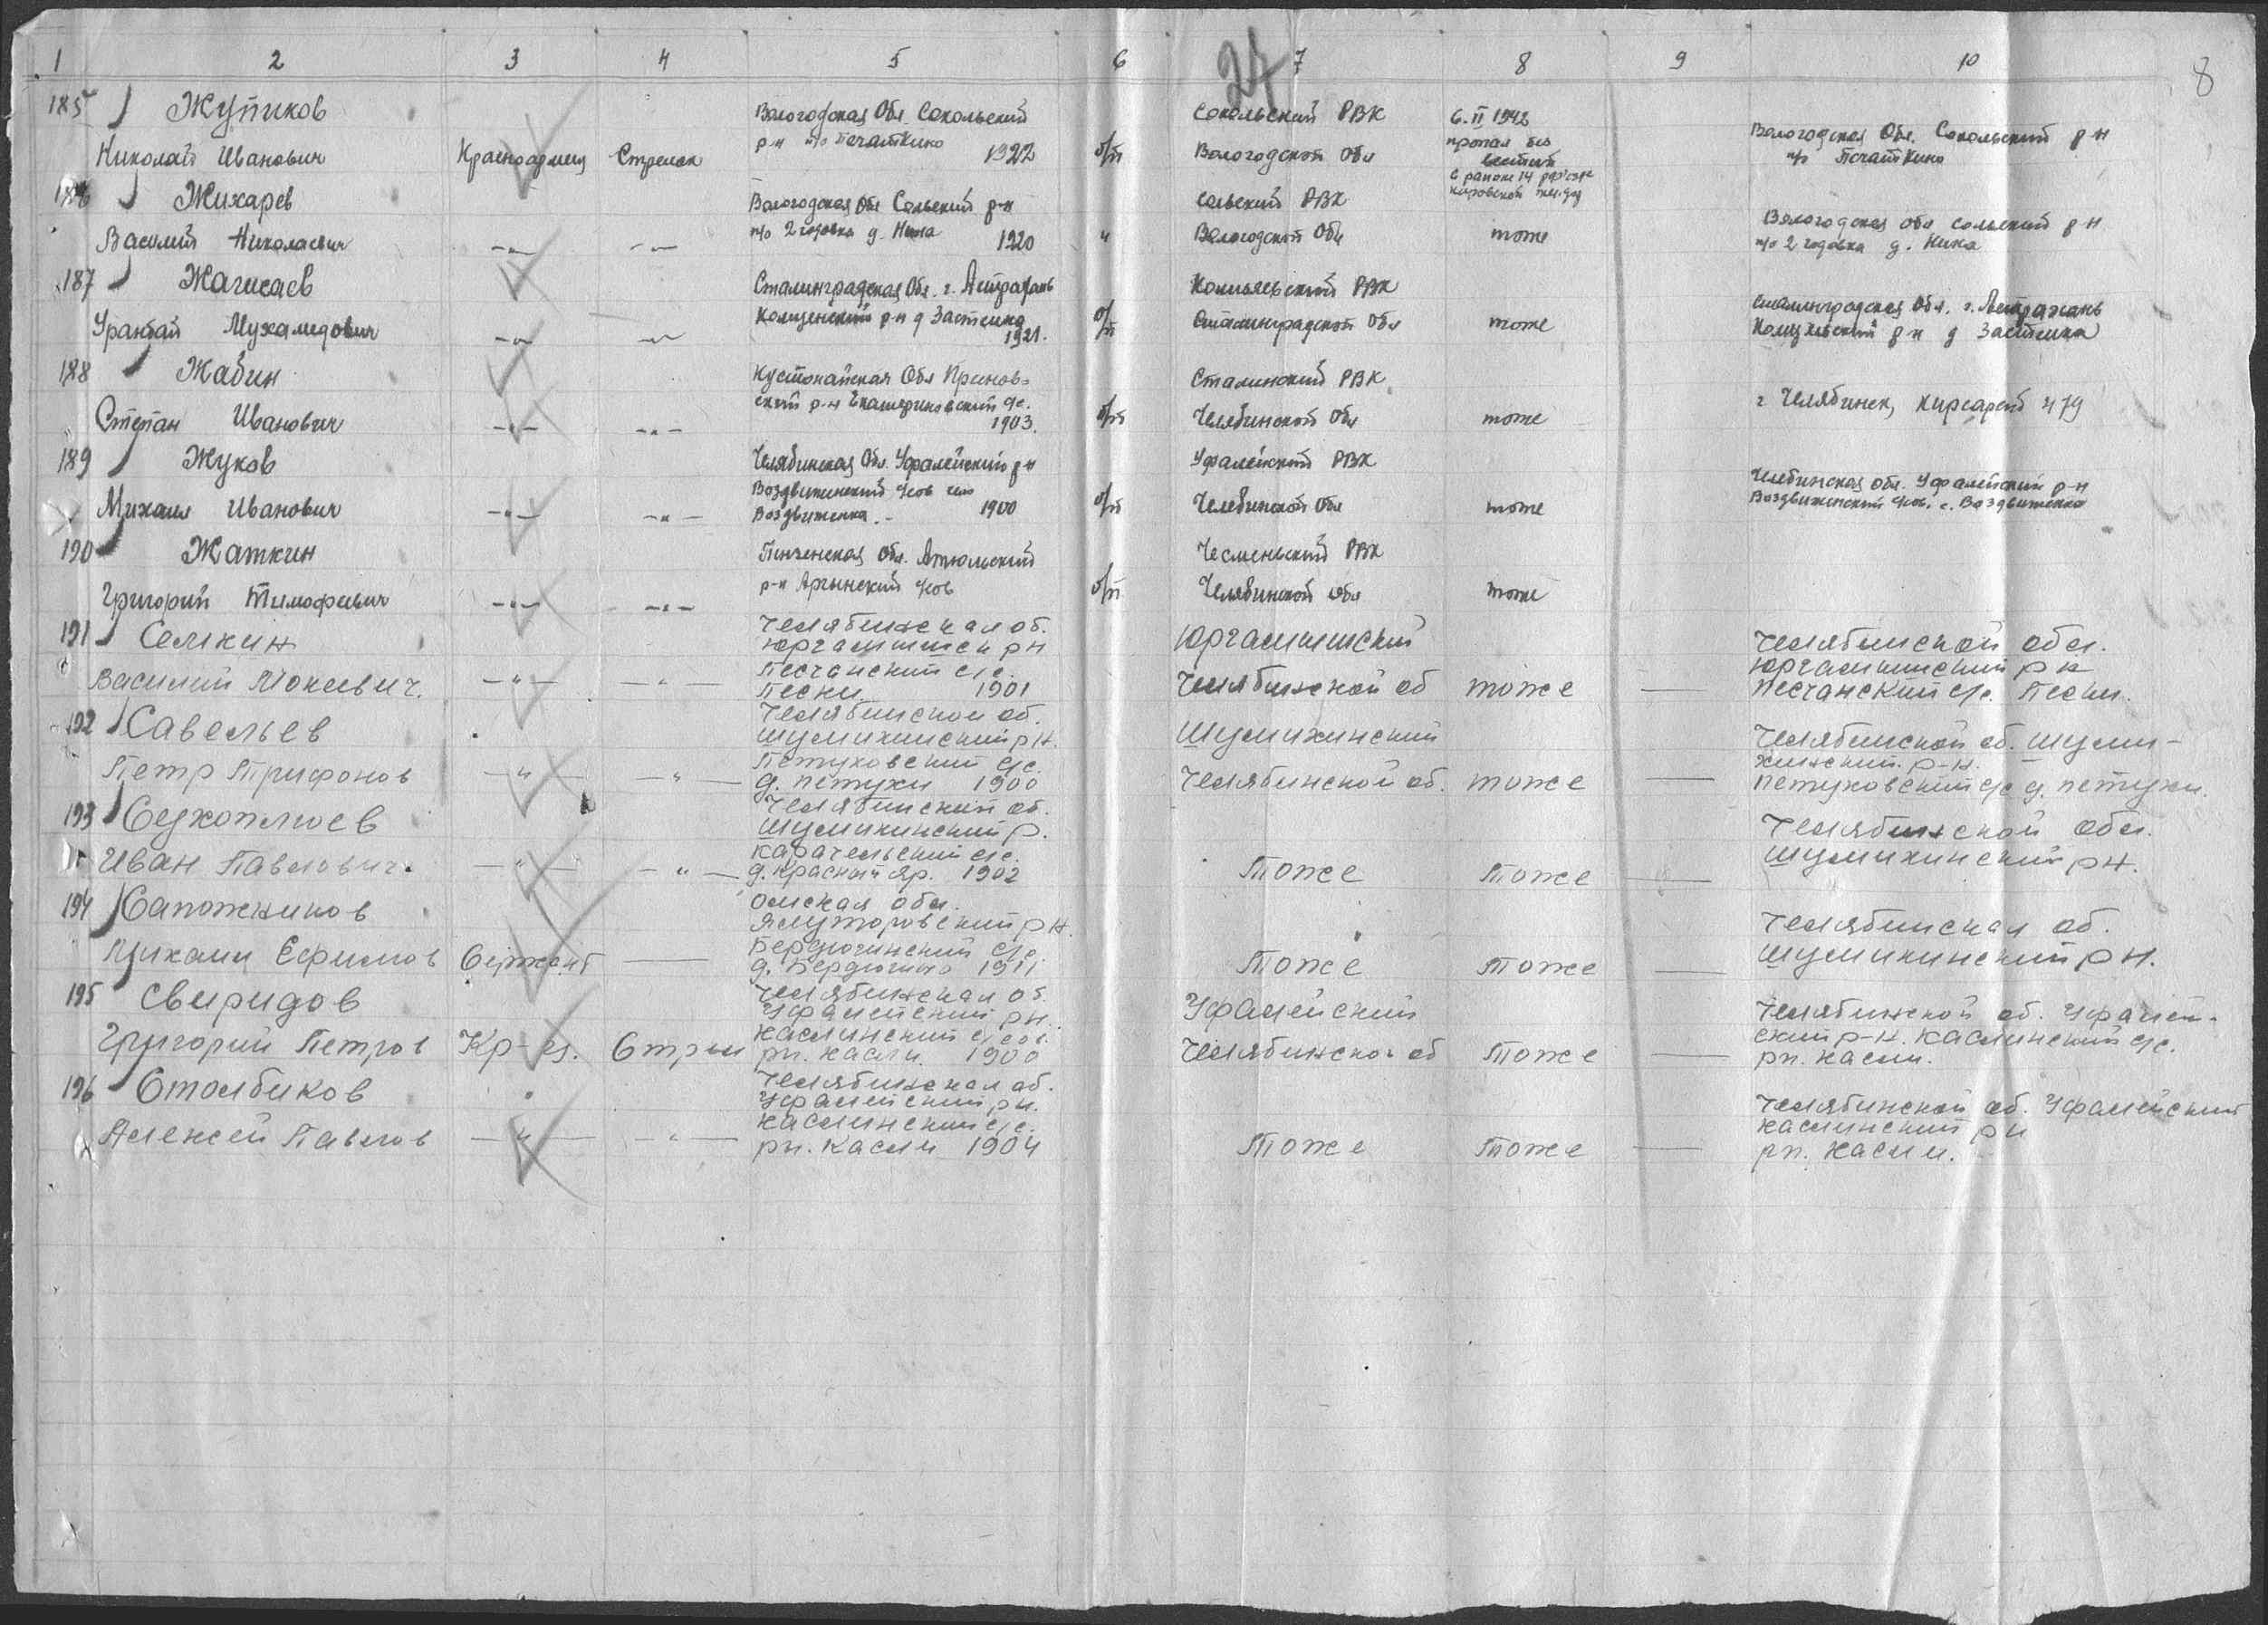 27
8
1 2 3 4 5 6 7 8 9 10
185 Жупиков
Николай Иванович Красноармеец Стрелок
Вологодская Обл. Сокольский
р-н п/о Печаткино 1922
б/п
Сокольский РВК
Вологодской Обл
6.II 1942
пропал без
вести
в районе 14 раз'езд
кировской жел.дор
Вологодская Обл. Сокольский р-н
п/о Печаткино
186 Жихарев
Василий Николаевич -"- -"-
Вологодская Обл Сольский р-н
п/о 2 годовка д. Нина 1920
"
Сольский РВК
Вологодской Обл
тоже
Вологодская обл сольский р-н
п/о 2 годовка д. Нина
187 Жагисаев
Уранбай Мухамедович -"- -"-
Сталинградская Обл. г. Астрахань
р-н д Застенка
1921.
б/п
РВК
Сталинградской Обл
тоже
Сталинградская Обл. г. Астрахань
р-н д Застенка
188 Жабин
Степан Иванович -"- -"-
Кустонайская Обл
ский р-н Екатериновский с/с.
1903.
б/п
Сталинский РВК
Челябинской Обл
тоже
г Челябинск, 479
189 Жуков
Михаил Иванович -"- -"-
Челябинская Обл. Уфалейский р-н
Воздвиженский с/сов село
Воздвиженка. - 1900
б/п
Уфалейский РВК
Челябинской Обл
тоже
Челябинская обл. Уфалейский р-н
Воздвиженский с/сов. с. Воздвиженка
190 Жаткин
Григорий Тимофеевич -"- -"-
Пензенская Обл.
р-н с/сов
б/п
Чесменьский РВК
Челябинской обл
тоже
191 Семкин
Василий Мокеевич. -"- -"-
Челябинская об.
Юргамышск рн
Песчанский с/с.
Пески 1901
Юргамышский
Челябинской об
тоже —
Челябинской обл.
Юргамышский р н
Песчанский с/с. Пески.
192 Савельев
Петр Трифонов -"- -"-
Челябинской об.
Шумихинский р н.
Петуховский с/с.
д. Петухи 1900
Шумихинский
Челябинской об.
тоже —
Челябинской об. Шуми-
хинский. р-н.
Петуховский с/с д. Петухи.
193 Сухоплюев
Иван Павлович. -"- -"-
Челябинский об.
Шумихинский р.
Карачельский с/с.
д. Красный яр. 1902
Тоже
Тоже —
Челябинской обл.
Шумихинский рн.
194 Сапожников
Михаил Ефимов Сержант —
Омская обл.
Ялуторовский р н.
Бердюгинский с/с
д. Бердюгино 1911
Тоже
Тоже —
Челябинская об.
Шумихинский р н.
195 Свиридов
Григорий Петров Кр-ец. Стрел
Челябинская об.
Уфалейский рн.
Каслинский с/сов.
рп. Касли 1900
Уфалейский
Челябинской об
Тоже —
Челябинской об. Уфалей-
ский р-н. Каслинский с/с.
рп. Касли.
196 Столбиков
Алексей Павлов -"- -"-
Челябинская об.
Уфалейский рн.
Каслинский с/с.
рп. Касли 1904
Тоже
Тоже —
Челябинской об. Уфалейский
Каслинский р н
рп. Касли.